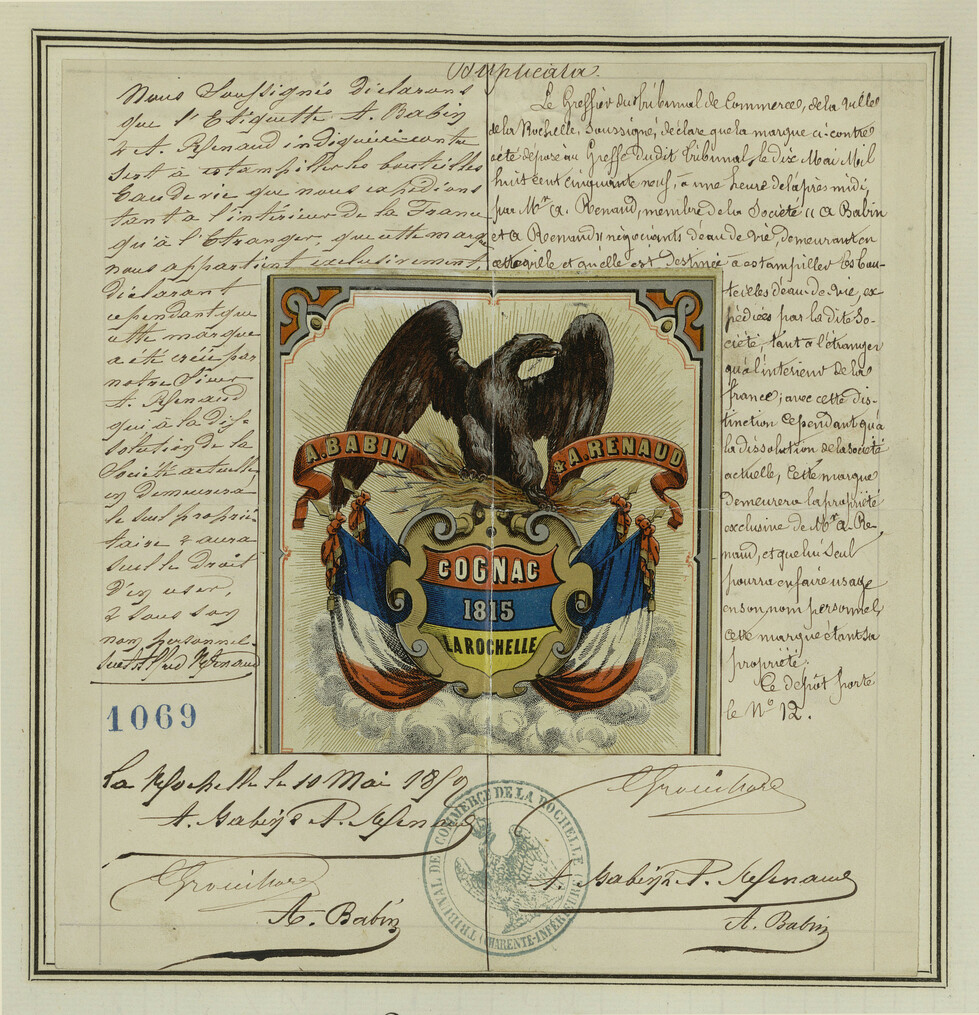 Duplicata.
Nous Soussignés déclarons
que l'Etiquette A. Babin
& A. Renaud indiquée ci-contre
sert à estampiller les bouteilles
Eau de vie que nous expédions
tant à l'intérieur de la France
qu'à l'Etranger, que cette marque
nous appartient exclusivement,
déclarant
cependant que
cette marque
a été créée par
notre Sieur
A. Renaud
qui à la dis-
solution de la
Société actuelle,
en demeurera
le seul proprié-
taire & aura
seul le droit
d'en user,
& sous son
nom personnel.
Alfred Renaud
1069
La Rochelle le 10 Mai 1859
A. Babin & A. Renaud
A. Babin
Le Greffier du tribunal de Commerce, de la ville
de la Rochelle, soussigné, déclare que la marque ci-contre
a été déposé au Greffe dudit tribunal, le dix Mai Mil
huit cent cinquante neuf, à une heure de l'après midi,
par Mr. A. Renaud, membre de la Société "A Babin
et A Renaud" négociants d'eau de vie, demeurant en
cette ville et qu'elle est destinée à estampiller les bou-
teilles d'eau de vie, ex-
pédiées par la dite So-
ciété, tant à l'étranger
qu'à l'intérieur de la
france; avec cette dis-
tinction cependant qu'à
la dissolution de la société
actuelle, cette marque
demeurera la propriété
exclusive de Mr. A. Re-
naud, et que lui seul
pourra en faire usage
en son nom personnel,
cette marque étant sa
propriété.
Ce dépôt porte
le No 12.
A. Babin & A. Renaud
A. Babin
A. BABIN
& A. RENAUD
COGNAC
1815
LA ROCHELLE
TRIBUNAL DE COMMERCE DE LA ROCHELLE
(CHARENTE-INFÉRIEURE)